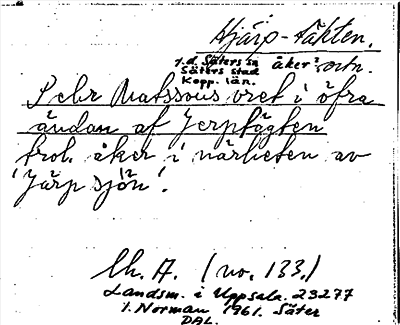 Hjärp-täkten.
t.d. Säters sn åker? ortn.
Säters stad
Kopp. län.
Pehr Matssons vret i öfra
ändan af Jerptägten
trol. åker i närheten av
'Järpsjön'.
Lh. A. (no. 133.)
Landsm. i Uppsala. 23277
I. Norman 1961. Säter
DAL.